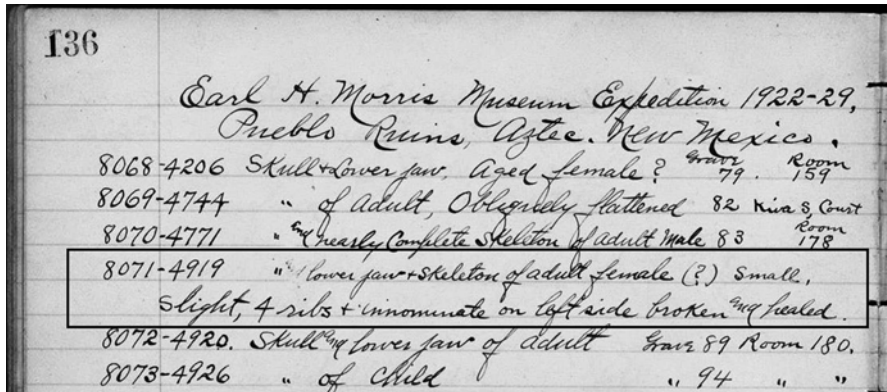 136
Earl H. Morris Museum Expedition 1922-29,
Pueblo Ruins, Aztec. New Mexico.
8068-4206 Skull + Lower jaw, Aged female? Grave 79. Room 159
8069-4744 " of Adult, Obliquely flattened 82 Kiva S, Court
8070-4771 " and nearly Complete Skeleton of adult Male 83 Room 178
8071-4919 " lower jaw + Skeleton of adult female (?) Small,
Slight, 4 ribs + innominate on left side broken and healed.
8072-4920. Skull and lower jaw of adult Grave 89 Room 180.
8073-4926 " of Child " 94 " "